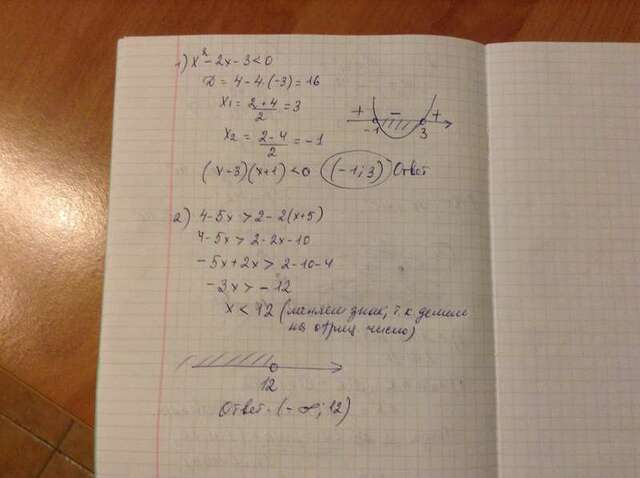 1) x² - 2x - 3 < 0
D = 4 - 4·(-3) = 16
x1 = 2+4/2 = 3
+ - +
-1 3
x2 = 2-4/2 = -1
(x-3)(x+1) < 0 (-1; 3) Ответ
2) 4-5x > 2-2(x+5)
4-5x > 2-2x-10
-5x+2x > 2-10-4
-3x > -12
x < 12 (меняем знак, т.к делим
на отриц число)
12
Ответ: (-∞; 12)